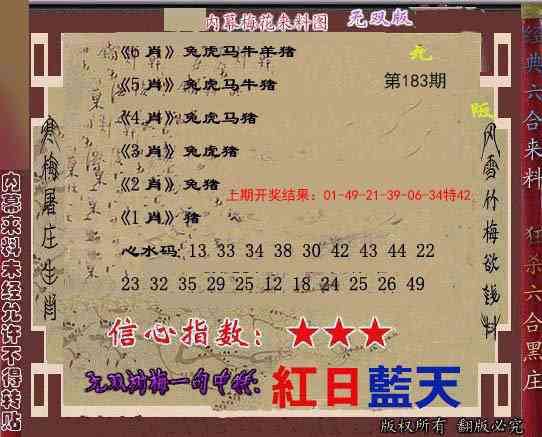 内幕梅花来料图 无双版
《6 肖》兔虎马牛羊猪
无
《5 肖》兔虎马牛猪
第183期
《4 肖》兔虎马猪
阪
《3 肖》兔虎猪
《2 肖》兔猪
上期开奖结果：01-49-21-39-06-34特42
《1 肖》猪
心水码：13 33 34 38 30 42 43 44 22
23 32 35 29 25 12 18 24 25 26 49
信心指数：★★★
无双鸿梅一句中特：紅日藍天
版权所有 翻版必究
寒梅屠庄生肖
风雪竹梅欲钱料
内幕来料未经允许不得转贴
经典六合来料 狂杀六合黑庄